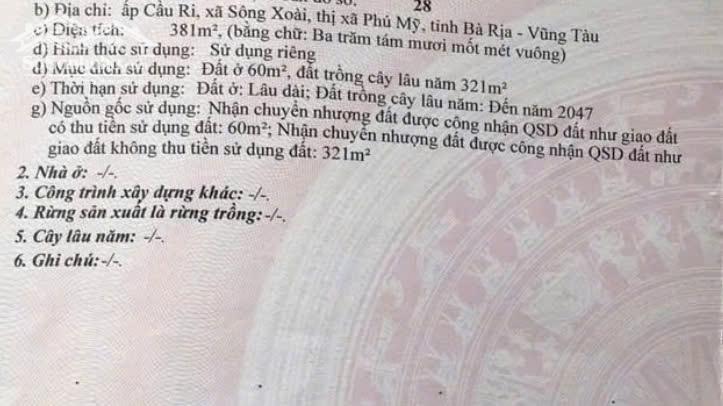 28
b) Địa chỉ: ấp Cầu Ri, xã Sông Xoài, thị xã Phú Mỹ, tỉnh Bà Rịa - Vũng Tàu
c) Diện tích: 381m², (bằng chữ: Ba trăm tám mươi mốt mét vuông)
d) Hình thức sử dụng: Sử dụng riêng
đ) Mục đích sử dụng: Đất ở 60m², đất trồng cây lâu năm 321m²
e) Thời hạn sử dụng: Đất ở: Lâu dài; Đất trồng cây lâu năm: Đến năm 2047
g) Nguồn gốc sử dụng: Nhận chuyển nhượng đất được công nhận QSD đất như giao đất
có thu tiền sử dụng đất: 60m²; Nhận chuyển nhượng đất được công nhận QSD đất như
giao đất không thu tiền sử dụng đất: 321m²
2. Nhà ở: -/-.
3. Công trình xây dựng khác: -/-.
4. Rừng sản xuất là rừng trồng: -/-.
5. Cây lâu năm: -/-.
6. Ghi chú: -/-.